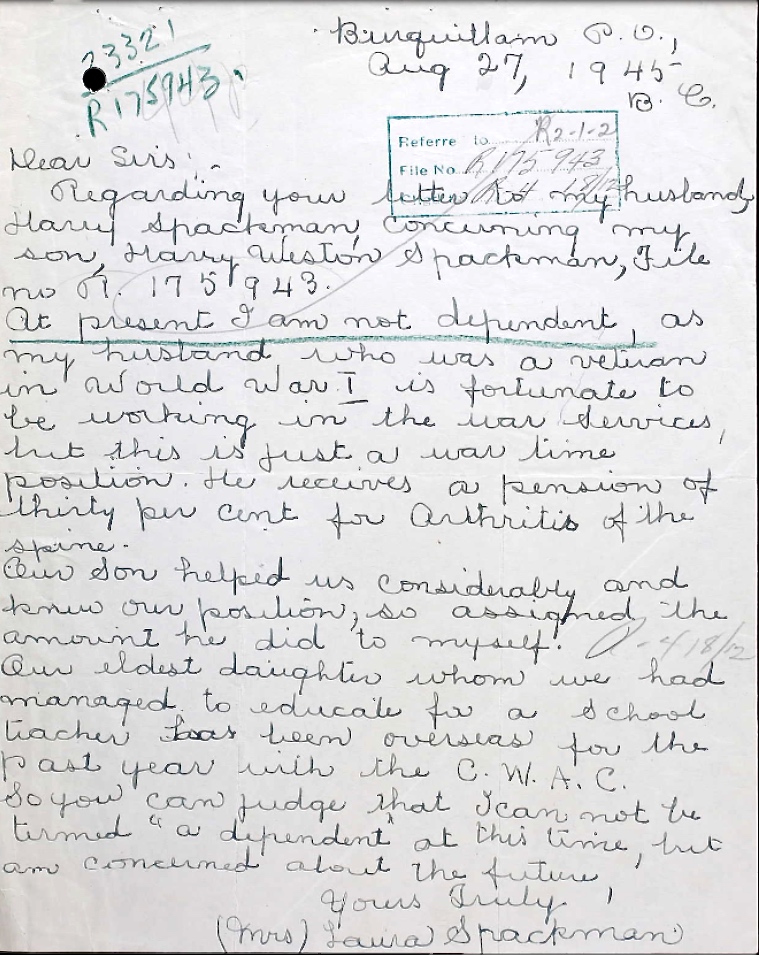 23321
R175943.
Burquitlam P.O.,
Aug 27, 1945
B. C.
Referre to R2-1-2
File No. R175943
18/12
Dear Sirs:-
Regarding your letter to my husband,
Harry Spackman, concerning my
son, Harry Weston Spackman, File
no R. 175943.
At present I am not dependent, as
my husband who was a veteran
in World War I is fortunate to
be working in the war services,
but this is just a war time
position. He receives a pension of
thirty per cent for Arthritis of the
spine.
Our Son helped us considerably and
knew our position, so assigned the
amount he did to myself.
18/12
Our eldest daughter whom we had
managed to educate for a School
teacher has been overseas for the
past year with the C. W. A. C.
So you can judge that I can not be
termed "a dependent" at this time, but
am concerned about the future,
Yours Truly,
(Mrs) Laura Spackman